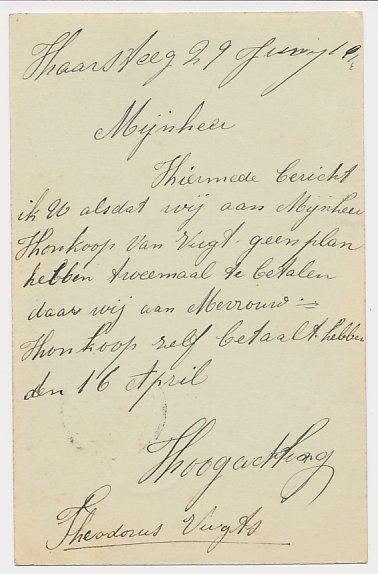 Haarsteeg 29 Juny 19
Mijnheer
Hiermede bericht
ik U alsdat wij aan Mijnheer
Honkoop Van Vugt geen plan
hebben tweemaal te betalen
daar wij aan Mevrouw =
Honkoop zelf betaalt hebben
den 16 April
Hoogachtend
Theodorus Vugts